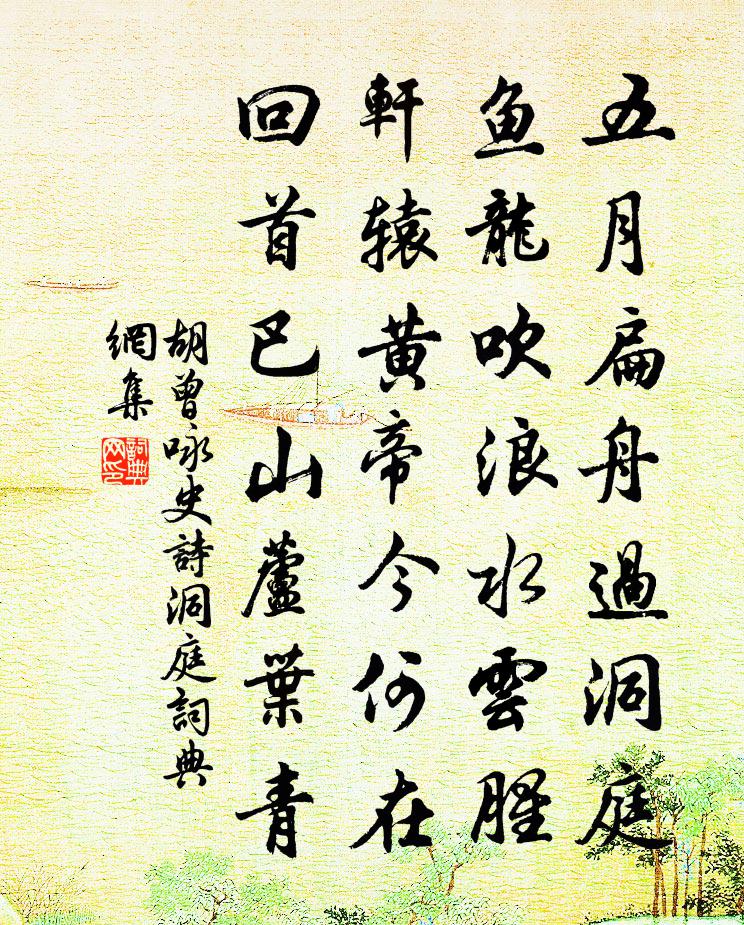 五月扁舟過洞庭
魚龍吹浪水雲腥
軒辕黃帝今何在
回首巴山蘆葉青
胡曾咏史詩洞庭詞典
網集
詞典
网印